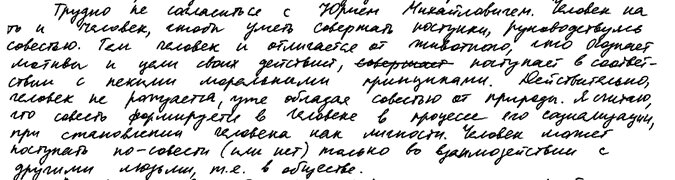 Трудно не согласиться с Юрием Михайловичем. Человек на
то и человек, чтобы уметь совершать поступки, руководствуясь
совестью. Тем человек и отличается от животного, что осознаёт
мотивы и цели своих действий, совершает поступает в соответ-
ствии с некими моральными принципами. Действительно,
человек не рождается, уже обладая совестью от природы. Я считаю,
что совесть формируется в человеке в процессе его социализации,
при становлении человека как личности. Человек может
поступать по-совести (или нет) только во взаимодействии с
другими людьми, т.е. в обществе.